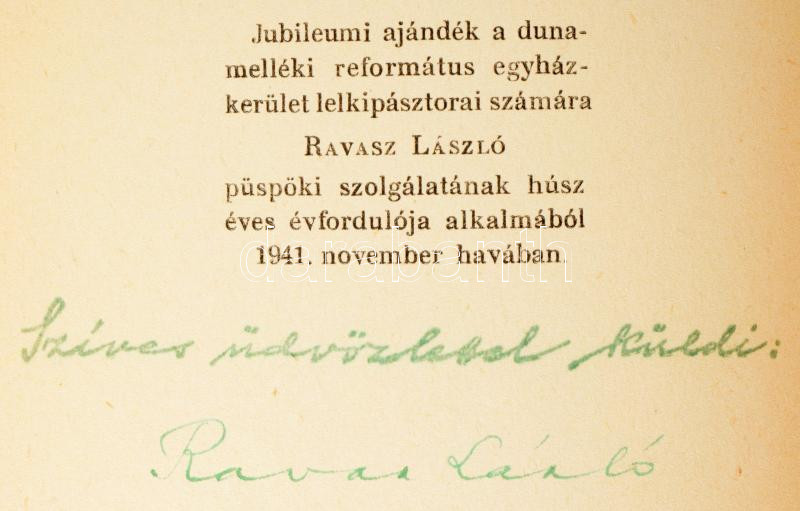 Jubileumi ajándék a duna-
melléki református egyház-
kerület lelkipásztorai számára
RAVASZ LÁSZLÓ
püspöki szolgálatának húsz
éves évfordulója alkalmából
1941. november havában.
darabanth
Szíves üdvözlettel küldi:
Ravasz László